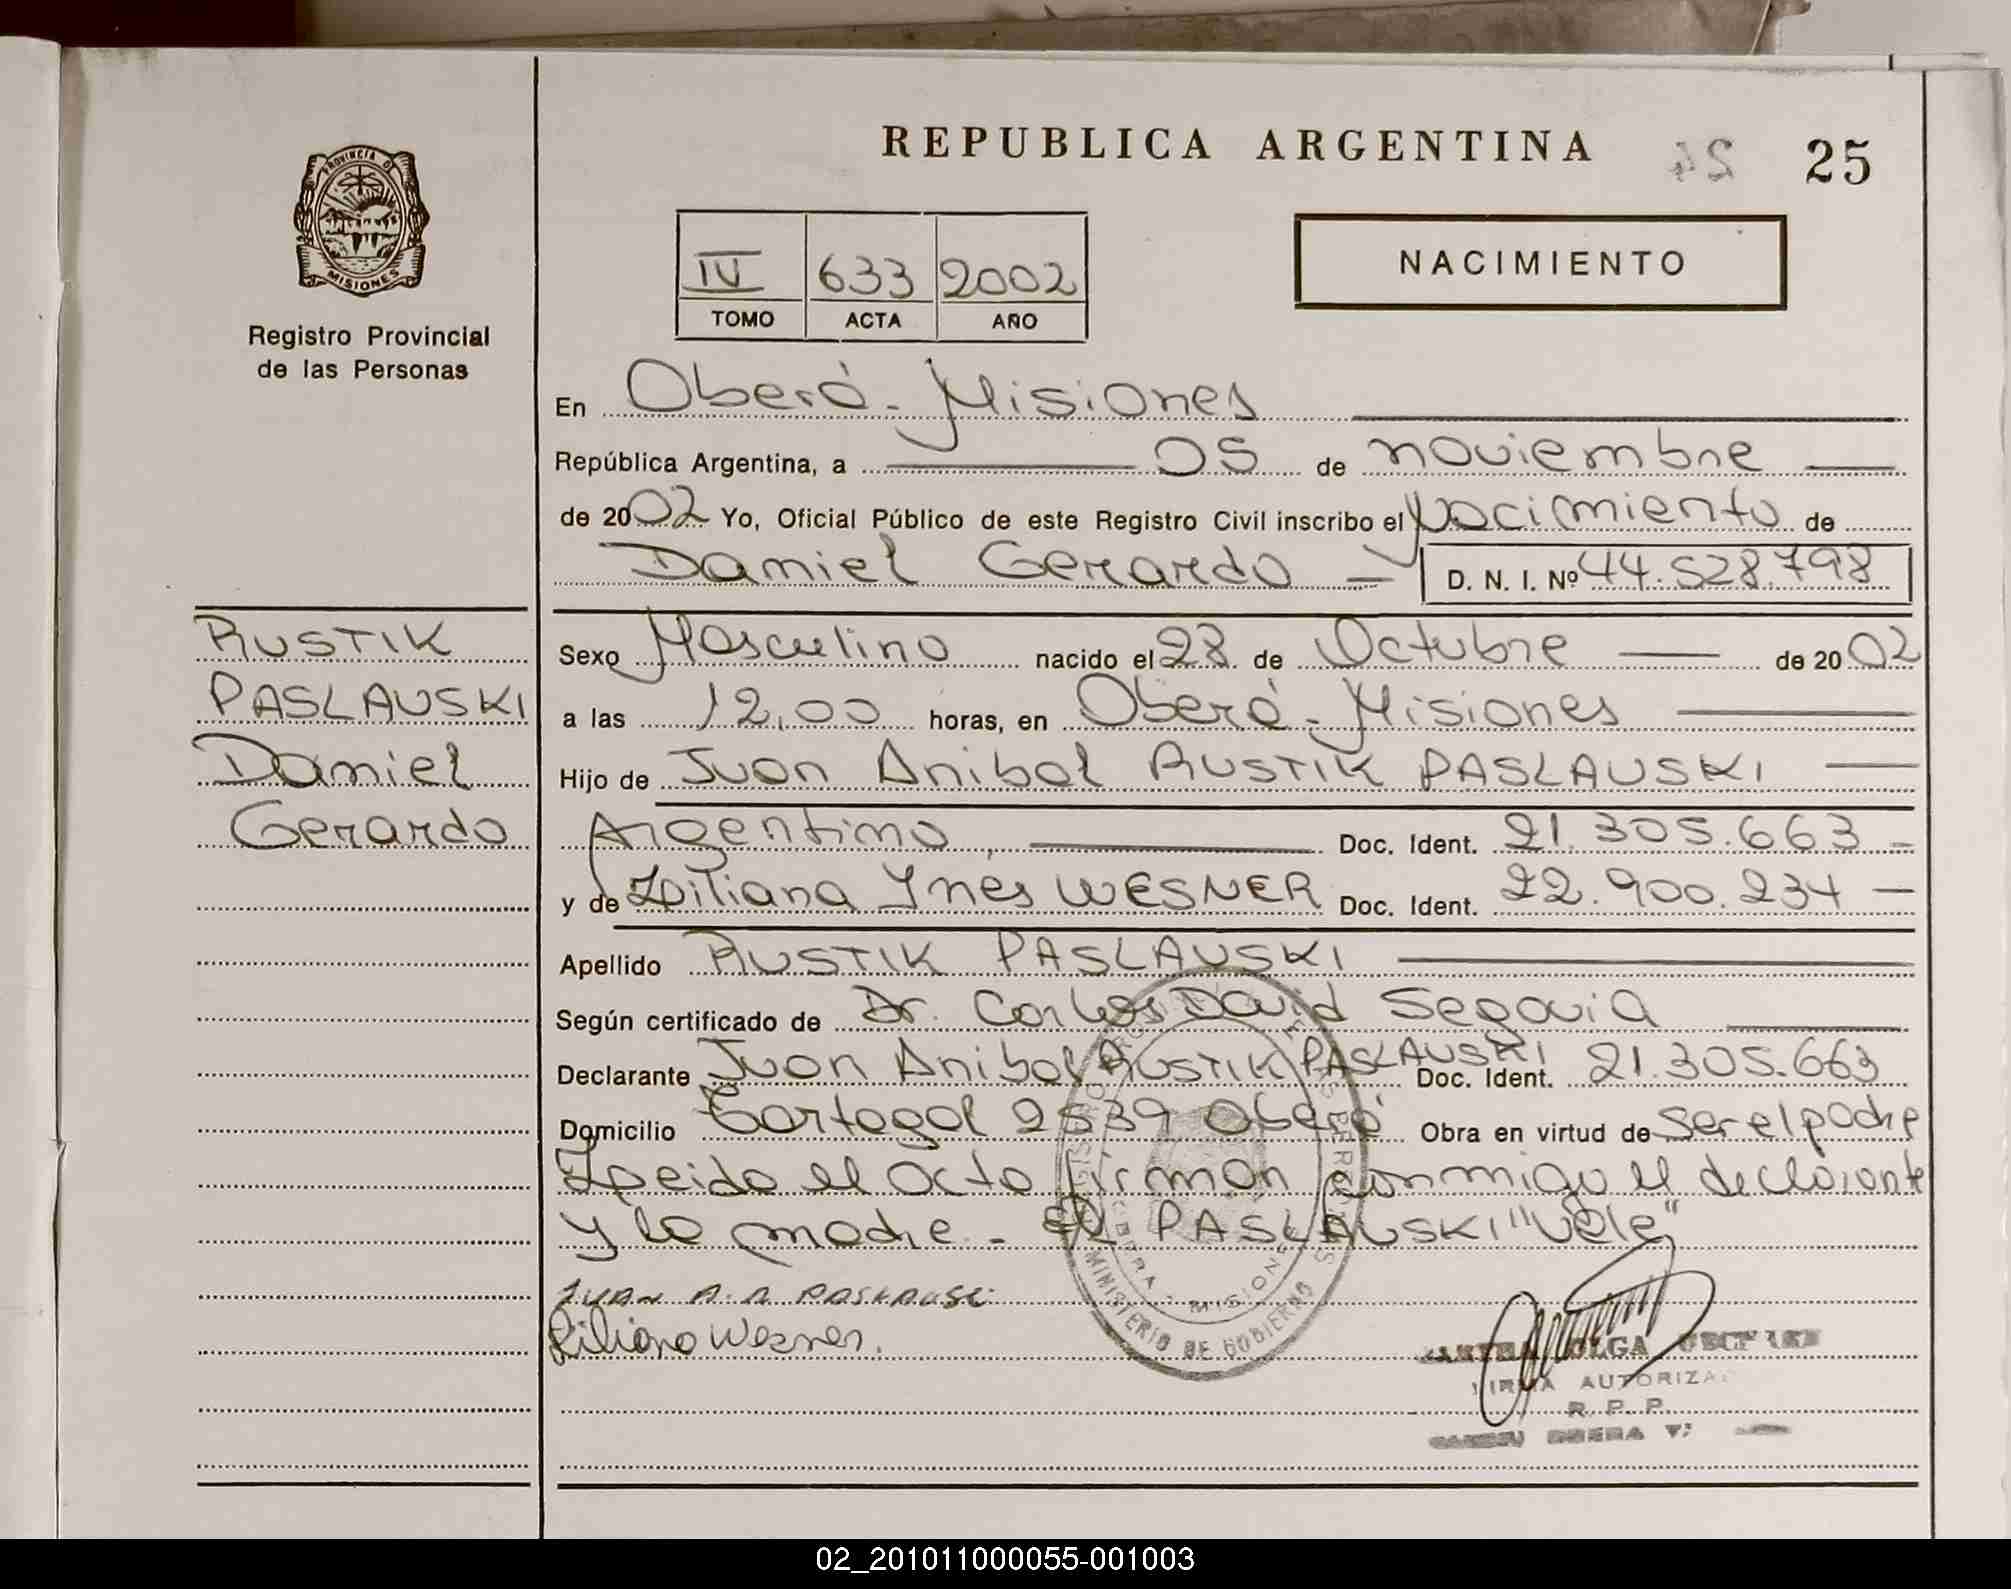 REPUBLICA ARGENTINA
24
25
PROVINCIA DE
MISIONES
Registro Provincial
de las Personas
IV 633 2002
TOMO ACTA AÑO
NACIMIENTO
En Oberá - Misiones
República Argentina, a 05 de noviembre
de 2002 Yo, Oficial Público de este Registro Civil inscribo el Nacimiento de
Daniel Gerardo - D. N. I. Nº 44.528.798
RUSTIK
PASLAUSKI
Daniel
Gerardo
Sexo Masculino nacido el 28 de Octubre de 2002
a las 12,00 horas, en Oberá - Misiones
Hijo de Juan Anibal RUSTIK PASLAUSKI
Argentino, Doc. Ident. 21.305.663 -
y de Liliana Ynés WESNER Doc. Ident. 22.900.234 -
Apellido RUSTIK PASLAUSKI
Según certificado de Dr. Carlos David Segovia
Declarante Juan Anibal RUSTIK PASLAUSKI Doc. Ident. 21.305.663
Domicilio Tartagal 2539 Oberá Obra en virtud de ser el padre
Leida el acta firman conmigo el declarante
y la madre - EL PASLAUSKI "Vale"
JUAN A. R PASLAUSKI
Liliana Wesner.
MINISTERIO DE GOBIERNO
MISIONES
OLGA
FIRMA AUTORIZADA
R. P. P.
02_201011000055-001003